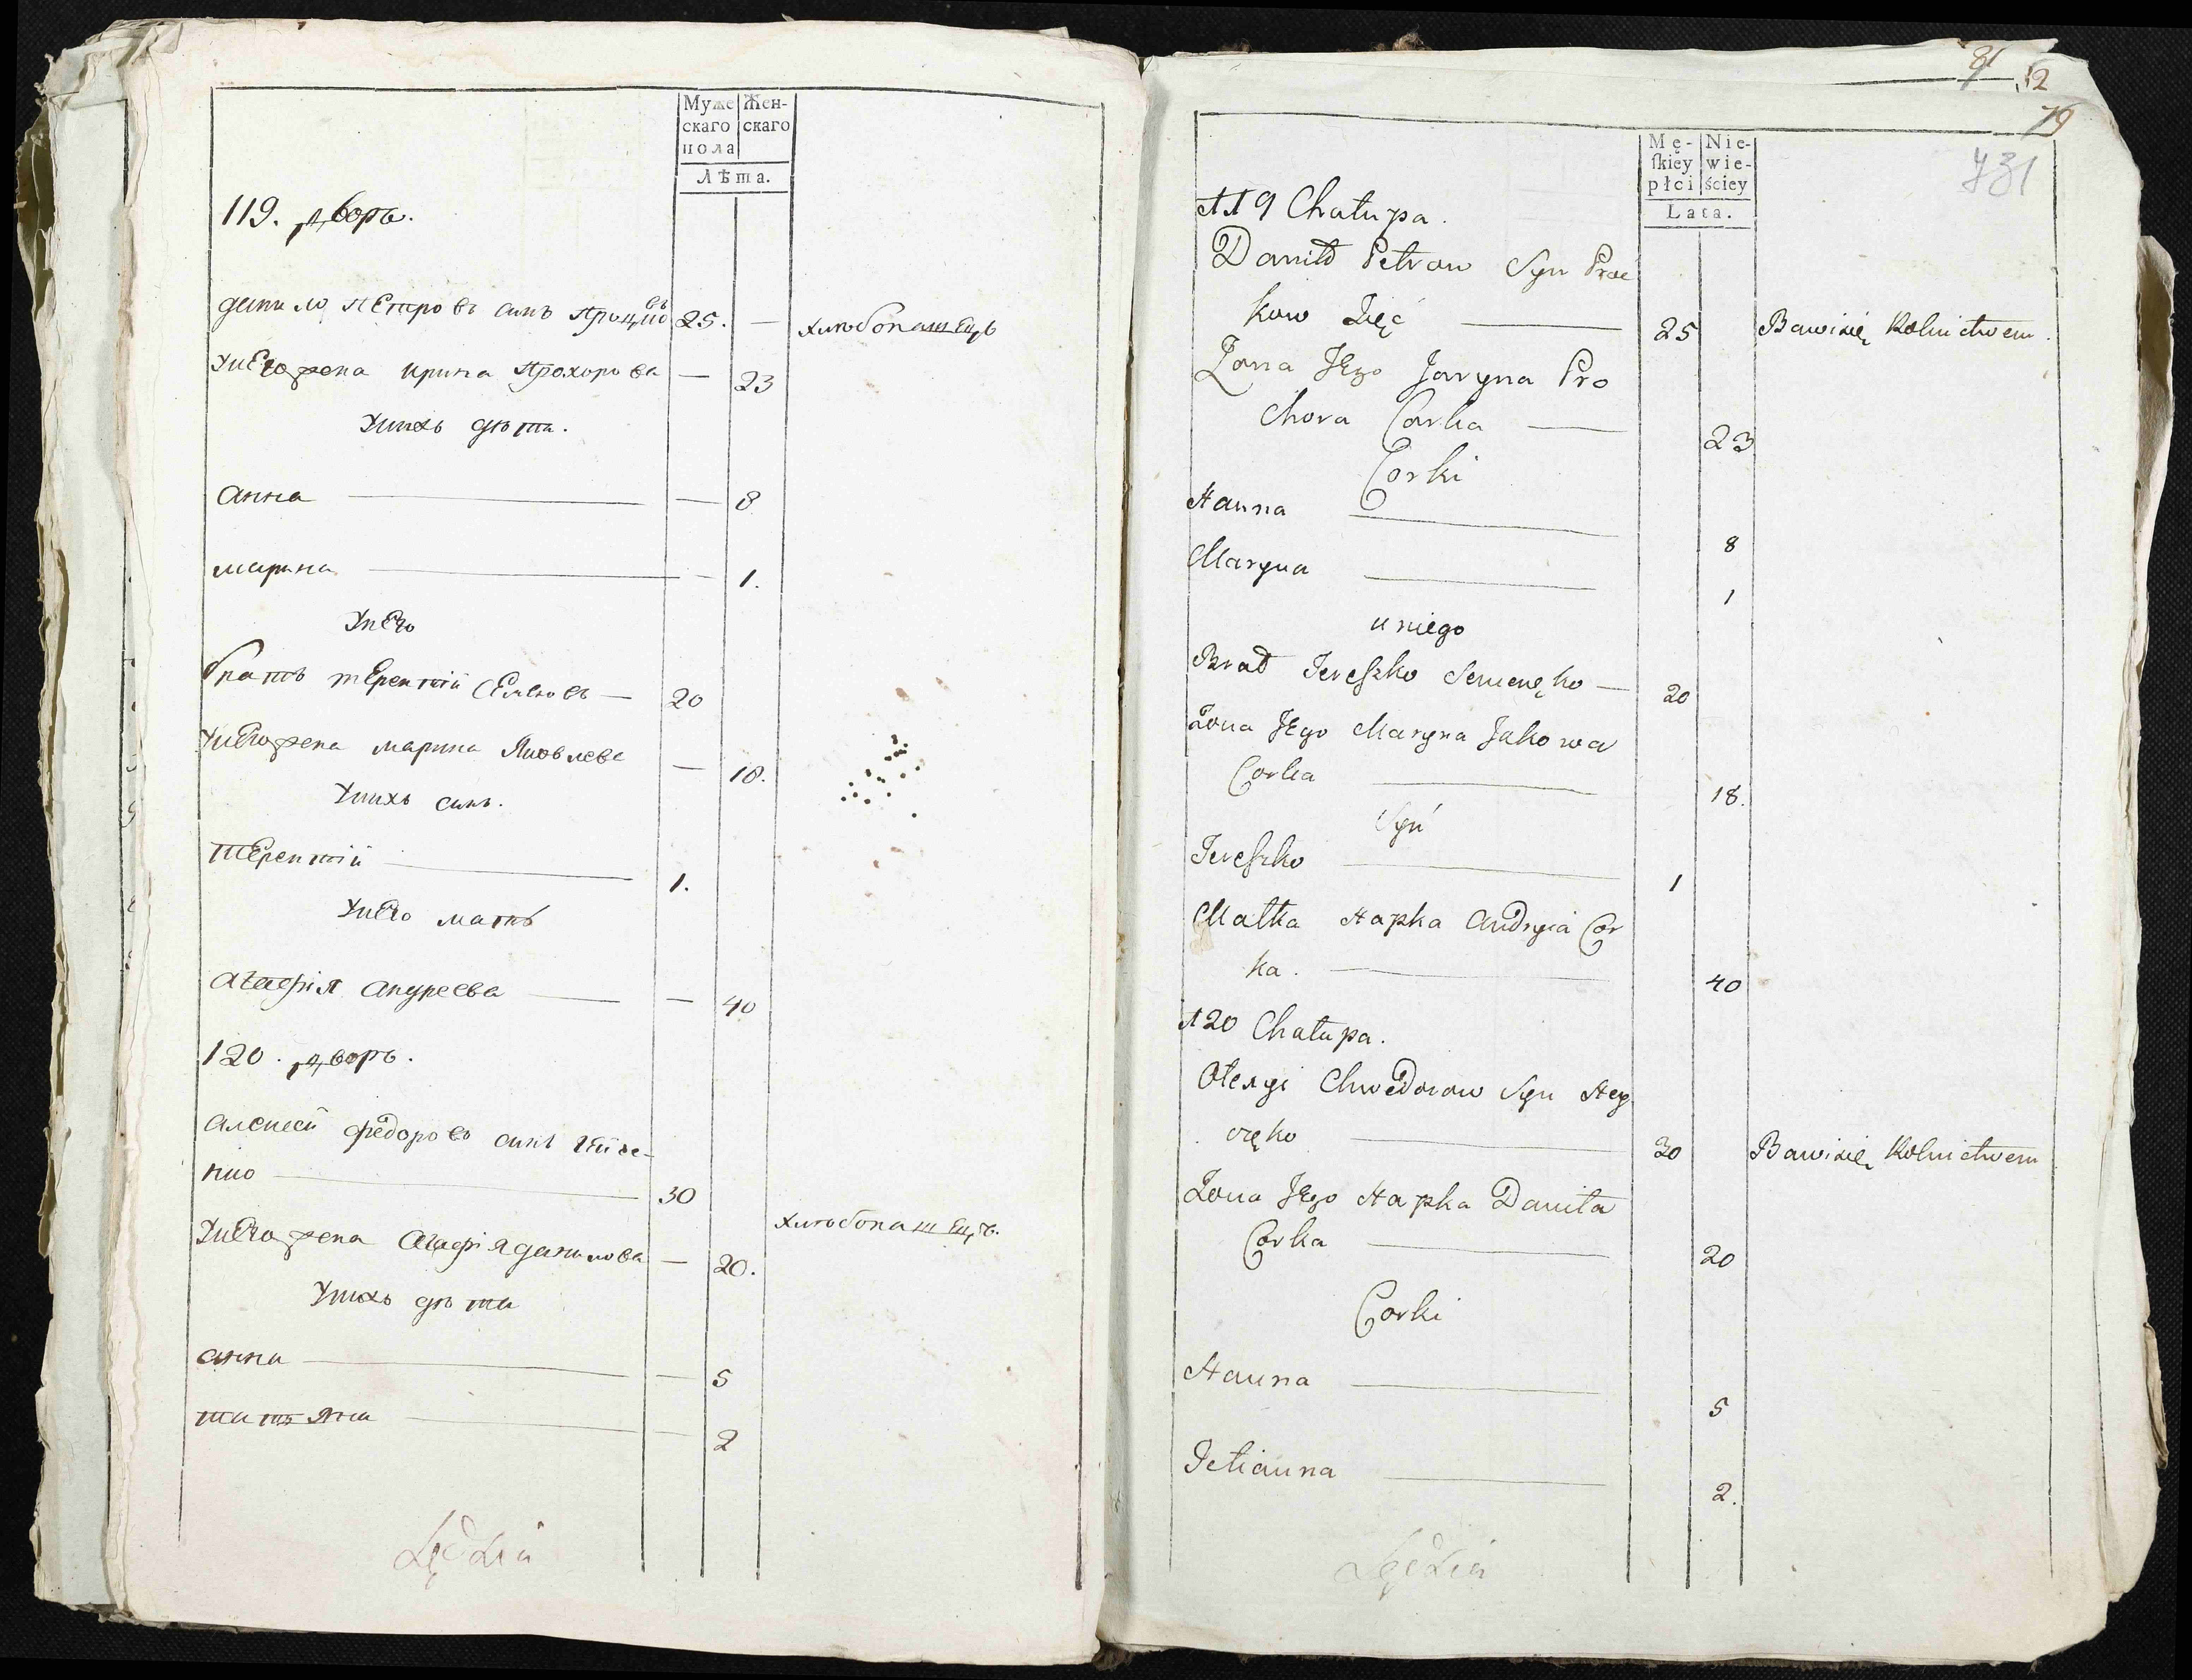 Муже Жен-
скаго скаго
пола
Лѣта.
119. дворъ.
данило пЕтровъ синъ проц
25. — хлѣбопашЕцъ
УнЕгожена ирина прохорова — 23
Унихъ дѣти.
анна — 8
марина — 1.
УнЕго
братъ тЕрентій СЕменовъ — 20
УнЕгожена марина Яковлева — 18.
Унихъ синъ.
тЕрентій 1.
УнЕго мать
агафія андреева — 40
120. дворъ.
алексей федоровъ синъ
нко 30
хлѣбопашЕцъ.
УнЕгожена агафія данилова — 20.
Унихъ дѣти
анна — 5
татьяна — 2
81
12
79
731
Mę- Nie-
ſkiey wie-
płci ściey
Lata.
119 Chałupa.
Daniło Petrow Syn Proc
kow Zięć 25 Bawisię Rolnictwem.
Zona JEgo Jaryna Pro
chora Corka 23
Corki
Hanna 8
Maryna 1
u niego
Brat Tereſzko Semenęko — 20
Zona JEgo Maryna Jakowa
Corka 18.
Syn
Tereſzko 1
Matka Hapka Andryia Cor
ka. 40
120 Chałupa.
Ołexyi Chwedorow Syn Hey
ozęko 30 Bawisię Rolnictwem
Zona JEgo Hapka Daniła
Corka 20
Corki
Hanna 5
Tetianna 2.